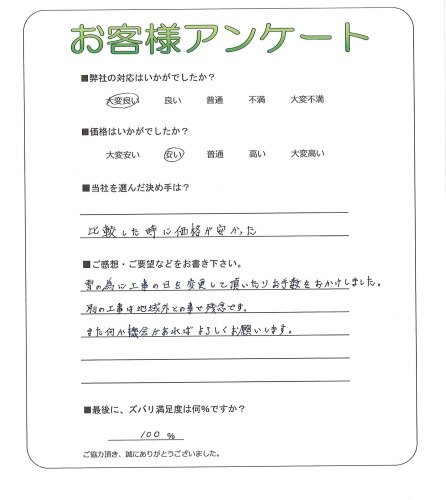 お客様アンケート
■弊社の対応はいかがでしたか？
大変良い 良い 普通 不満 大変不満
■価格はいかがでしたか？
大変安い 安い 普通 高い 大変高い
■当社を選んだ決め手は？
比較した時に価格が安かった
■ご感想・ご要望などをお書き下さい。
雪の為に工事の日を変更して頂いたりお手数をおかけしました。
別の工事は地域外との事で残念です。
また何か機会があればよろしくお願いします。
■最後に、ズバリ満足度は何%ですか？
100 %
ご協力頂き、誠にありがとうございました。